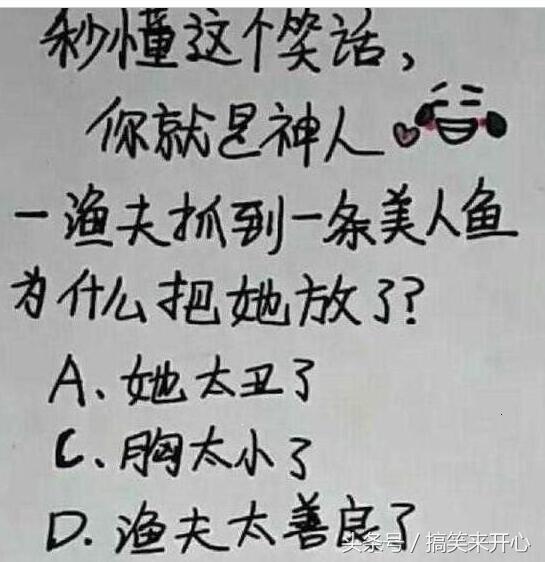 秒懂这个笑话，
你就是神人
一渔夫抓到一条美人鱼
为什么把她放了？
A、她太丑了
C、胸太小了
D.渔夫太善良了
头条号/搞笑来开心